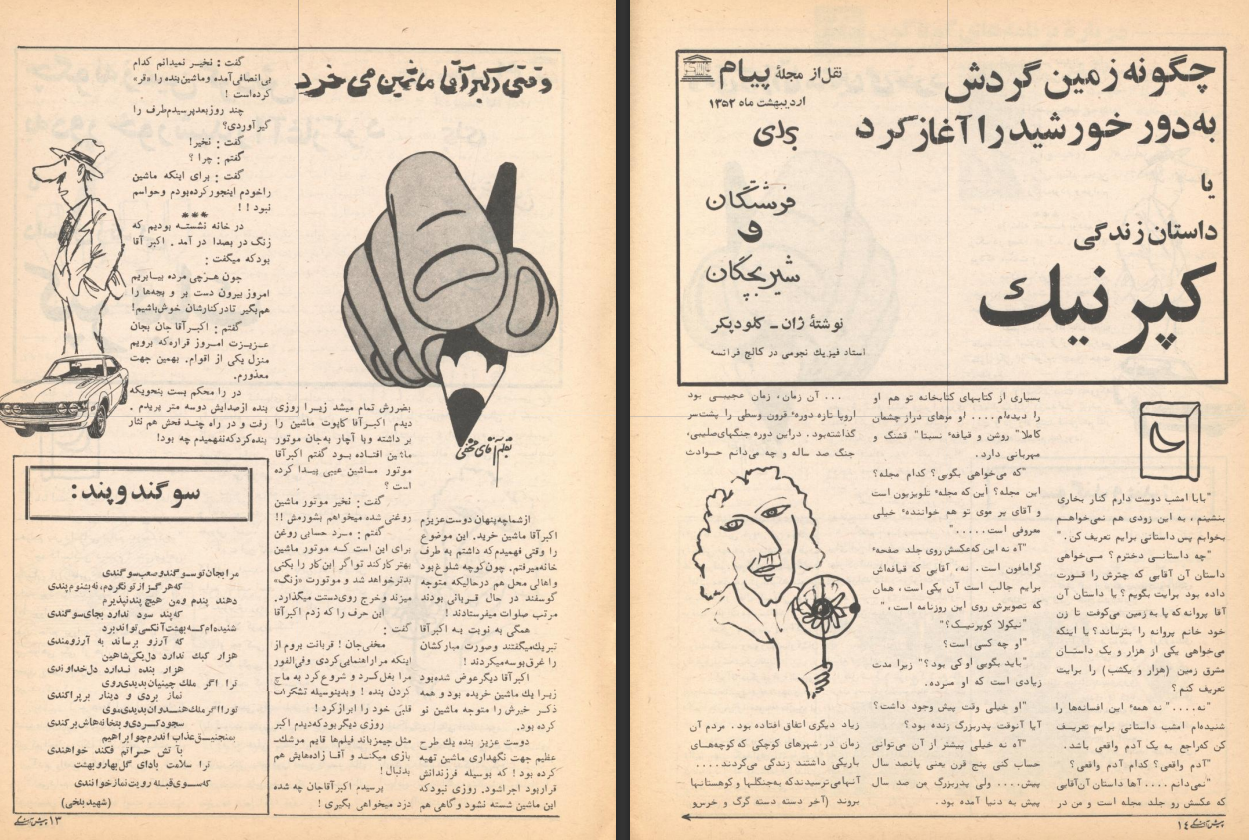 چگونه زمین گردش
به دور خورشید را آغاز کرد
یا
داستان زندگی
کپرنیك
نقل از مجلهٔ پیام
اردیبهشت ماه ۱۳۵۲
برای
فرشتگان
و
شیربچگان
نوشتهٔ ژان ـ کلود پکر
استاد فیزیك نجومی در کالج فرانسه
"بابا امشب دوست دارم کنار بخاری
بنشینم، به این زودی هم نمی‌خواهم
بخوابم پس داستانی برایم تعریف کن."
"چه داستانی دخترم؟ می‌خواهی
داستان آن آقایی که چترش را قورت
داده بود برایت بگویم؟ یا داستان آن
آقا پروانه که پا به زمین می‌کوفت تا زن
خود خانم پروانه را بترساند؟ یا اینکه
می‌خواهی یکی از هزار و یک داستان
مشرق زمین (هزار و یکشب) را برایت
تعریف کنم؟
"نه...." نه همه" این افسانه‌ها را
شنیده‌ام امشب داستانی برایم تعریف
کن که راجع به یک آدم واقعی باشد.
"آدم واقعی؟ کدام آدم واقعی؟
"نمی‌دانم .... آها داستان آن آقایی
که عکسش رو جلد مجله است و من در
بسیاری از کتابهای کتابخانه تو هم او
را دیده‌ام .... او موهای دراز چشمان
کاملا" روشن و قیافه" نسبتا" قشنگ و
مهربانی دارد.
"که می‌خواهی بگویی؟ کدام مجله؟
این مجله؟ این که مجله" تلویزیون است
و آقای پر موی تو هم خواننده" خیلی
معروفی است....."
"آه نه این که عکسش روی جلد صفحه"
گرامافون است. نه، آقایی که قیافه‌اش
برایم جالب است آن یکی است، همان
که تصویرش روی این روزنامه است،"
"نیکولا کوپرنیک؟"
"او چه کسی است؟
"باید بگویی او کی بود؟" زیرا مدت
زیادی است که او مرده.
"او خیلی وقت پیش وجود داشت؟
آیا آنوقت پدربزرگ زنده بود؟
"آه نه خیلی پیشتر از آن می‌توانی
حساب کنی پنج قرن یعنی پانصد سال
پیش.... ولی پدربزرگ من صد سال
پیش به دنیا آمده بود.
... آن زمان، زمان عجیبی بود
اروپا تازه دوره" قرون وسطی را پشت‌سر
گذاشته‌بود. در این دوره جنگهای‌صلیبی،
جنگ صد ساله و چه می‌دانم حوادث
زیاد دیگری اتفاق افتاده بود. مردم آن
زمان در شهرهای کوچکی که کوچه‌های
باریکی داشتند زندگی می‌کردند....
آنها می‌ترسیدند که به جنگلها و کوهستانها
بروند (آخر دسته دسته گرگ و خرس و
پیش‌آهنگی ۱٤
وقتی اکبر آقا ماشین می خرد
بقلم آقای مخفی
از شما چه پنهان دوست عزیزم
اکبر آقا ماشین خرید. این موضوع
را وقتی فهمیدم که داشتم به طرف
خانه میرفتم. چون کوچه شلوغ بود
و اهالی محل هم در حالیکه متوجه
گوسفند در حال قربانی بودند
مرتب صلوات میفرستادند!
همگی به نوبت به اکبر آقا
تبریك میگفتند و صورت مبارکشان
را غرق بوسه میکردند!
اکبر آقا دیگر عوض شده بود
زیرا یك ماشین خریده بود و همه
ذکر خیرش را متوجه ماشین نو
کرده بود.
دوست عزیز بنده یك طرح
عظیم جهت نگهداری ماشین تهیه
کرده بود! که بوسیله فرزندانش
قرار بود اجرا شود. روزی نبود که
این ماشین شسته نشود و گاهی هم
بضررش تمام میشد زیرا روزی
دیدم اکبر آقا کاپوت ماشین را
بر داشته و با آچار به جان موتور
ماشین افتاده بود گفتم اکبر آقا
موتور ماشین عیبی پیدا کرده
است؟
گفت: نخیر موتور ماشین
روغنی شده میخواهم بشورمش!!
گفتم: مرد حسابی روغن
برای این است که موتور ماشین
بهتر کار کند تو اگر این کار را بکنی
بدتر خواهد شد و موتورت «زنگ»
میزند و خرج روی دستت میگذارد.
این حرف را که زدم اکبر آقا
گفت:
مخفی جان! قربانت بروم از
اینکه مرا راهنمایی کردی وفی‌الفور
مرا بغل کرد و شروع کرد به ماچ
کردن بنده! و بدینوسیله تشکرات
قلبی خود را ابراز کرد!
روزی دیگر بود که دیدم اکبر
مثل جیمز باند فیلم‌ها قایم موشك‌ـ
بازی میکند و آقا زاده‌هایش هم
بدنبال!
پرسیدم اکبر آقا جان چه شده
دزد میخواهی بگیری!
گفت: نخیر نمیدانم کدام
بی‌انصافی آمده و ماشین بنده را «قر»
کرده است!
چند روز بعد پرسیدم طرف را
گیر آوردی؟
گفت: نخیر!
گفتم: چرا؟
گفت: برای اینکه ماشین
را خودم اینجور کرده بودم و حواسم
نبود!!
***
در خانه نشسته بودیم که
زنگ در بصدا در آمد. اکبر آقا
بود که میگفت:
جون هرچی مرده بیا بریم
امروز بیرون دست بر و بچه‌ها را
هم بگیر تا در کنارشان خوش باشیم!
گفتم: اکبر آقا جان بجان
عزیزت امروز قراره که برویم
منزل یکی از اقوام. بهمین جهت
معذورم.
در را محکم بست بنحویکه
بنده از صدایش دو سه متر پریدم.
رفت و در راه چند فحش هم نثار
بنده کرد که نفهمیدم چه بود!
سوگند و پند:
مرا بجان تو سوگند و صعب سوگندی
که هرگز از تو نگردم، نه بشنوم پندی
دهند پندم و من هیچ پند نپذیرم
که پند سود ندارد بجای سوگندی
شنیده‌ام که بهشت آنکسی تواند برد
که آرزو برساند به آرزومندی
هزار کبك ندارد دل یکی شاهین
هزار بنده ندارد دل خداوندی
ترا اگر ملك چینیان بدیدی روی
نماز بردی و دینار بر پراکندی
تو را اگر ملك هندوان بدیدی موی
سجود کردی و بتخانه‌هاش برکندی
بمنجنیق عذاب اندرم چو ابراهیم
بآتش حسراتم فکند خواهندی
ترا سلامت بادای گل بهار و بهشت
که سوی قبله رویت نماز خوانندی
(شهید بلخی)
۱۳ پیش‌آهنگی